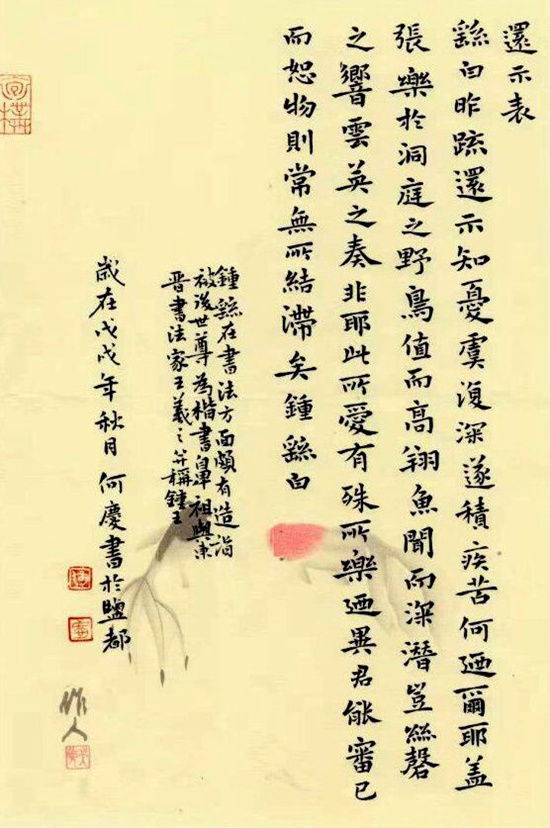 還示表
繇白昨疏還示知憂虞復深遂積疾苦何迺爾耶盖
張樂於洞庭之野鳥值而高翔魚聞而深潛豈絲磬
之響雲英之奏非耶此所愛有殊所樂迺異君能審己
而恕物則常無所結滯矣鍾繇白
鍾繇在書法方面頗有造詣
被後世尊為楷書鼻祖與東
晋書法家王羲之并稱鍾王
歲在戊戌年秋月何慶書於鹽都
作人